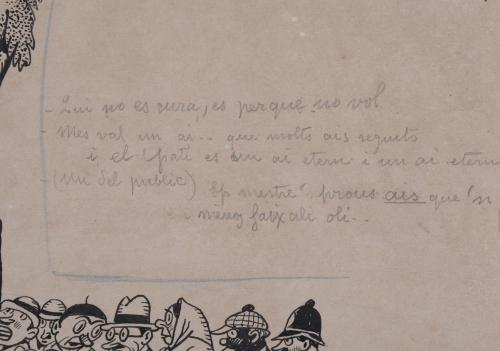 - Qui no es cura, es perque no vol
- Mes val un ai... que molts ais seguits
i el Pati es un ai etern i un ai etern
(Un del public) Ep mestre! prous ais que 'n
faix ali oli..